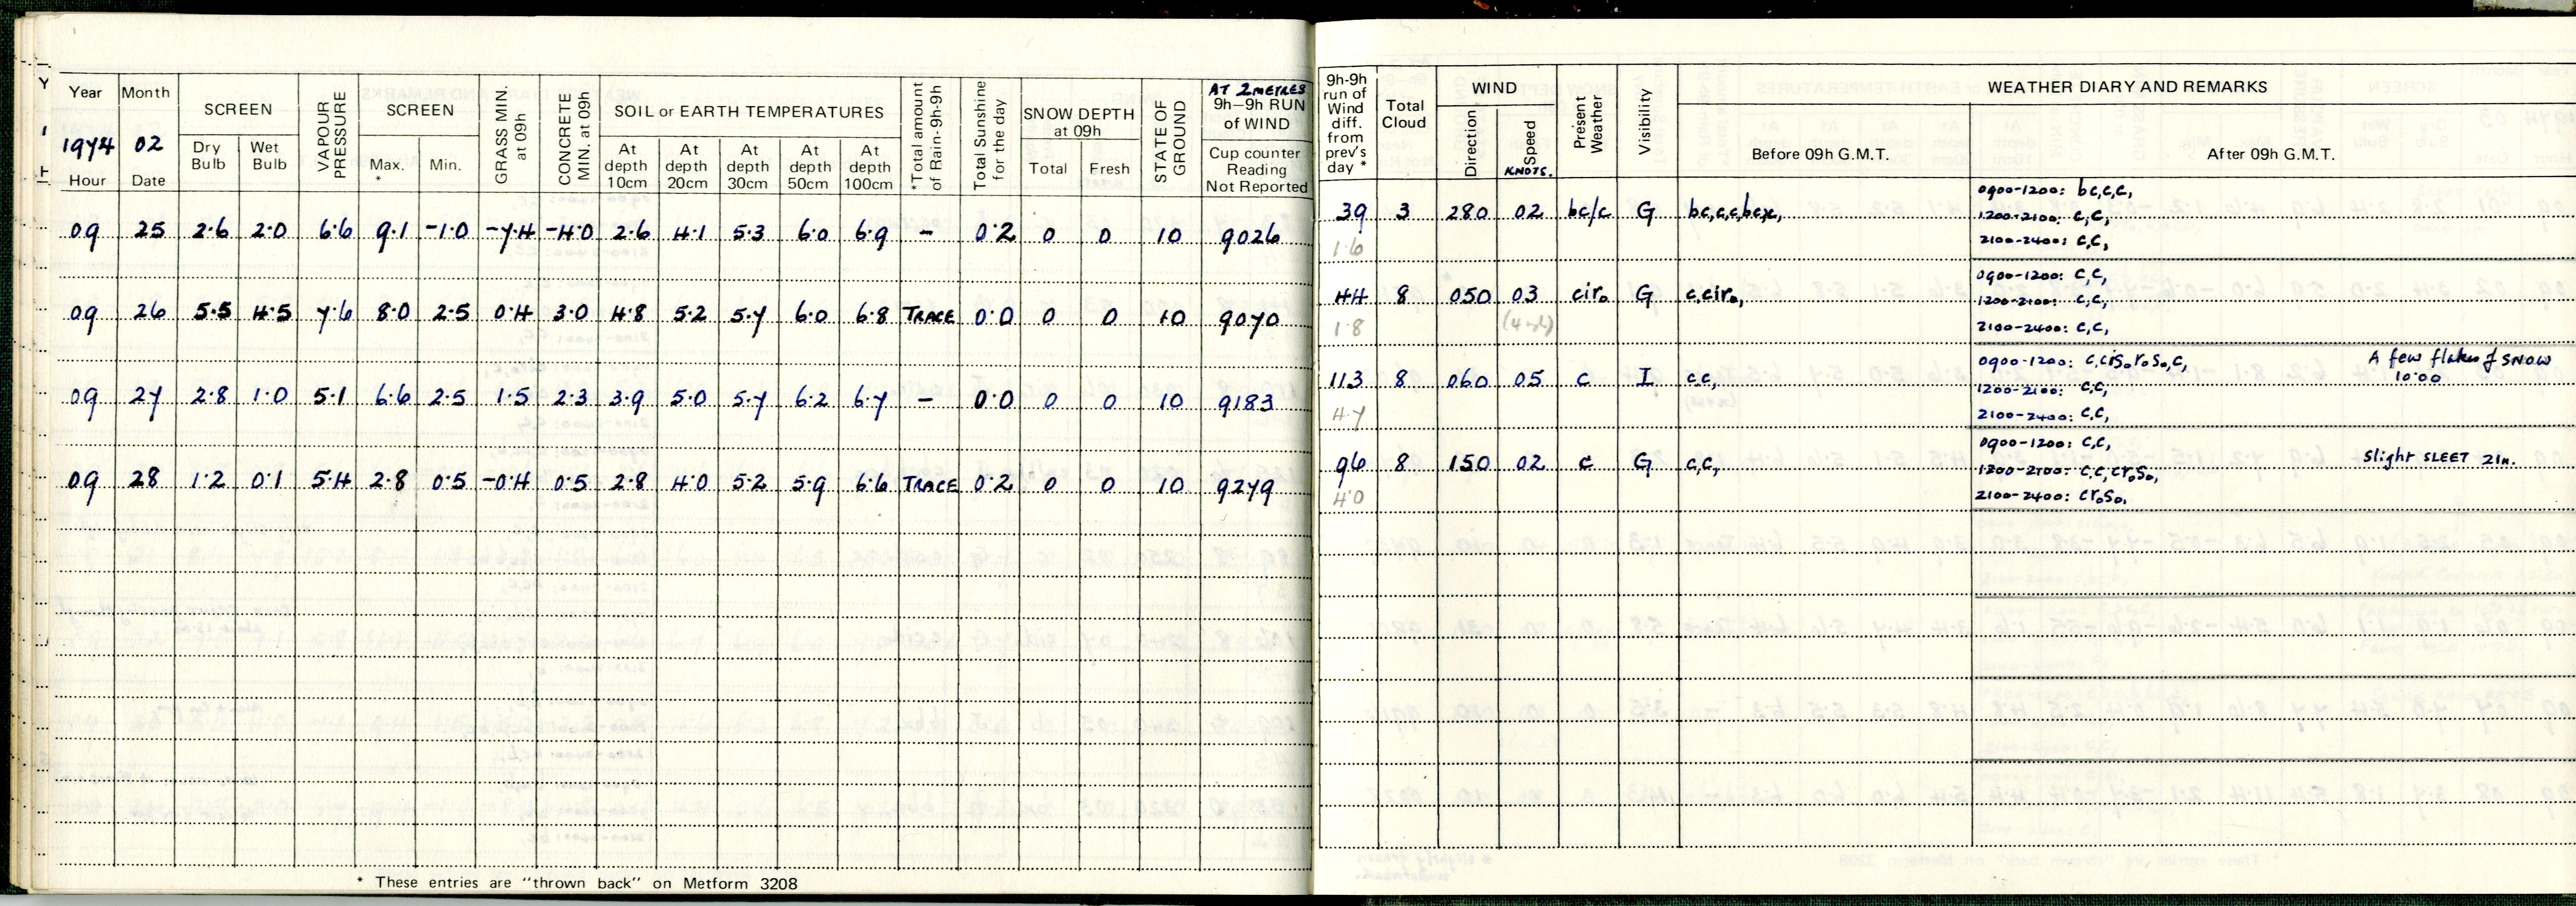 Year Month SCREEN VAPOUR PRESSURE SCREEN GRASS MIN. at 09h CONCRETE MIN. at 09h SOIL or EARTH TEMPERATURES *Total amount of Rain-9h-9h Total Sunshine for the day SNOW DEPTH at 09h STATE OF GROUND AT 2 METRES 9h-9h RUN of WIND
1974 02 Dry Bulb Wet Bulb Max. * Min. At depth 10cm At depth 20cm At depth 30cm At depth 50cm At depth 100cm Total Fresh Cup counter Reading Not Reported
Hour Date
09 25 2.6 2.0 6.6 9.1 -1.0 -7.4 -4.0 2.6 4.1 5.3 6.0 6.9 - 0.2 0 0 10 9026
09 26 5.5 4.5 7.6 8.0 2.5 0.4 3.0 4.8 5.2 5.7 6.0 6.8 TRACE 0.0 0 0 10 9070
09 27 2.8 1.0 5.1 6.6 2.5 1.5 2.3 3.9 5.0 5.7 6.2 6.7 - 0.0 0 0 10 9183
09 28 1.2 0.1 5.4 2.8 0.5 -0.4 0.5 2.8 4.0 5.2 5.9 6.6 TRACE 0.2 0 0 10 9279
* These entries are "thrown back" on Metform 3208
9h-9h run of Wind diff. from prev's day * Total Cloud WIND Present Weather Visibility WEATHER DIARY AND REMARKS
Direction Speed KNOTS. Before 09h G.M.T. After 09h G.M.T.
0900-1200: bc,c,c,
39 3 280 02 bc/c G bc,c,c,bcx, 1200-2100: c,c,
1.6 2100-2400: c,c,
0900-1200: c,c,
44 8 050 03 cir₀ G c,cir₀, 1200-2100: c,c,
1.8 2100-2400: c,c,
0900-1200: c,cis₀r₀s₀,c, A few flakes of SNOW
113 8 060 05 c I c,c, 1200-2100: c,c, 10.00
4.7 2100-2400: c,c,
0900-1200: c,c,
96 8 150 02 c G c,c, 1200-2100: c,c,cr₀s₀, Slight SLEET 21h.
4.0 2100-2400: cr₀s₀,